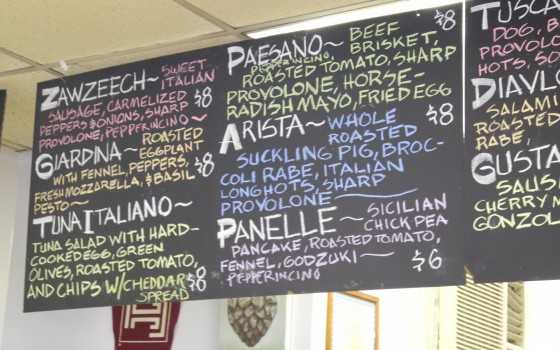 ZAWZEECH~ SWEET
ITALIAN
SAUSAGE, CARMELIZED
PEPPERS & ONIONS, SHARP
PROVOLONE, PEPPERINCINO~
$8
GIARDINA~ ROASTED
EGGPLANT
WITH FENNEL, PEPPERS,
FRESH MOZZARELLA, & BASIL
PESTO~
$8
TUNA ITALIANO~
TUNA SALAD WITH HARD-
COOKED EGG, GREEN
OLIVES, ROASTED TOMATO,
AND CHIPS W/CHEDDAR
SPREAD
$8
PAESANO~ BEEF
BRISKET,
PEPPERINCINO,
ROASTED TOMATO, SHARP
PROVOLONE, HORSE-
RADISH MAYO, FRIED EGG
$8
ARISTA~ WHOLE
ROASTED
SUCKLING PIG, BROC-
COLI RABE, ITALIAN
LONGHOTS, SHARP
PROVOLONE
$8
PANELLE~ SICILIAN
CHICK PEA
PANCAKE, ROASTED TOMATO,
FENNEL, GODZUKI~
PEPPERINCINO
$6
TUSCA
DOG, B
PROVOLO
HOTS, SO
DIAVL
SALAMI
ROASTED
RABE,
GUSTA
SAUS
CHERRY M
GONZOL